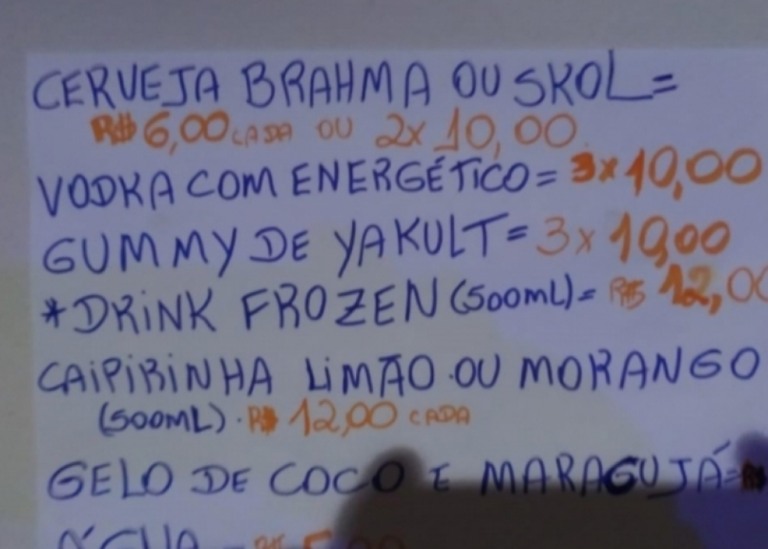 CERVEJA BRAHMA OU SKOL=
R$ 6,00 CADA OU 2x 10,00
VODKA COM ENERGÉTICO= 3x 10,00
GUMMY DE YAKULT= 3x 10,00
*DRINK FROZEN (500mL)= R$ 12,00
CAIPIRINHA LIMÃO OU MORANGO
(500mL) · R$ 12,00 CADA
GELO DE COCO E MARAGUJÁ= R$
ÁGUA